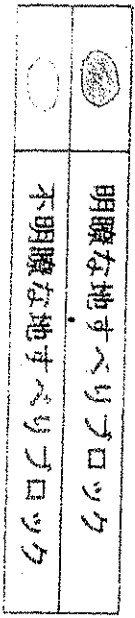 明瞭な地すべりブロック
不明瞭な地すべりブロック